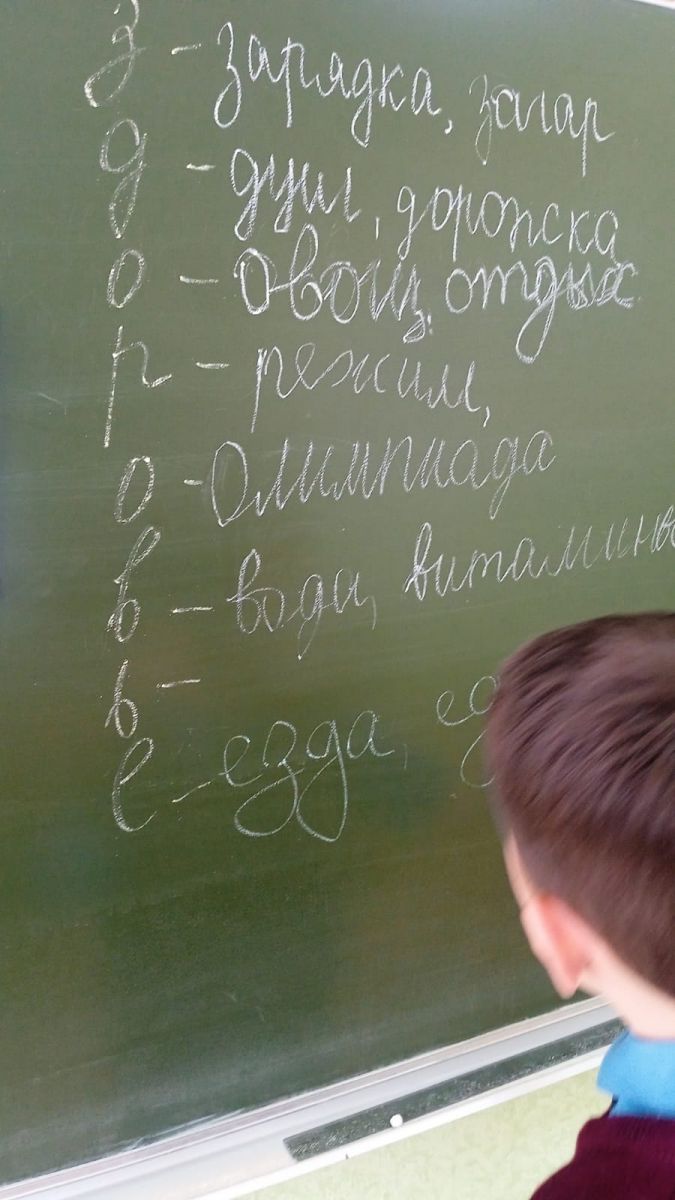 з - зарядка, загар
д - душ, дорожка
о - овощ, отдых
р - режим,
о - Олимпиада
в - вода, витамины
ь -
е - езда,